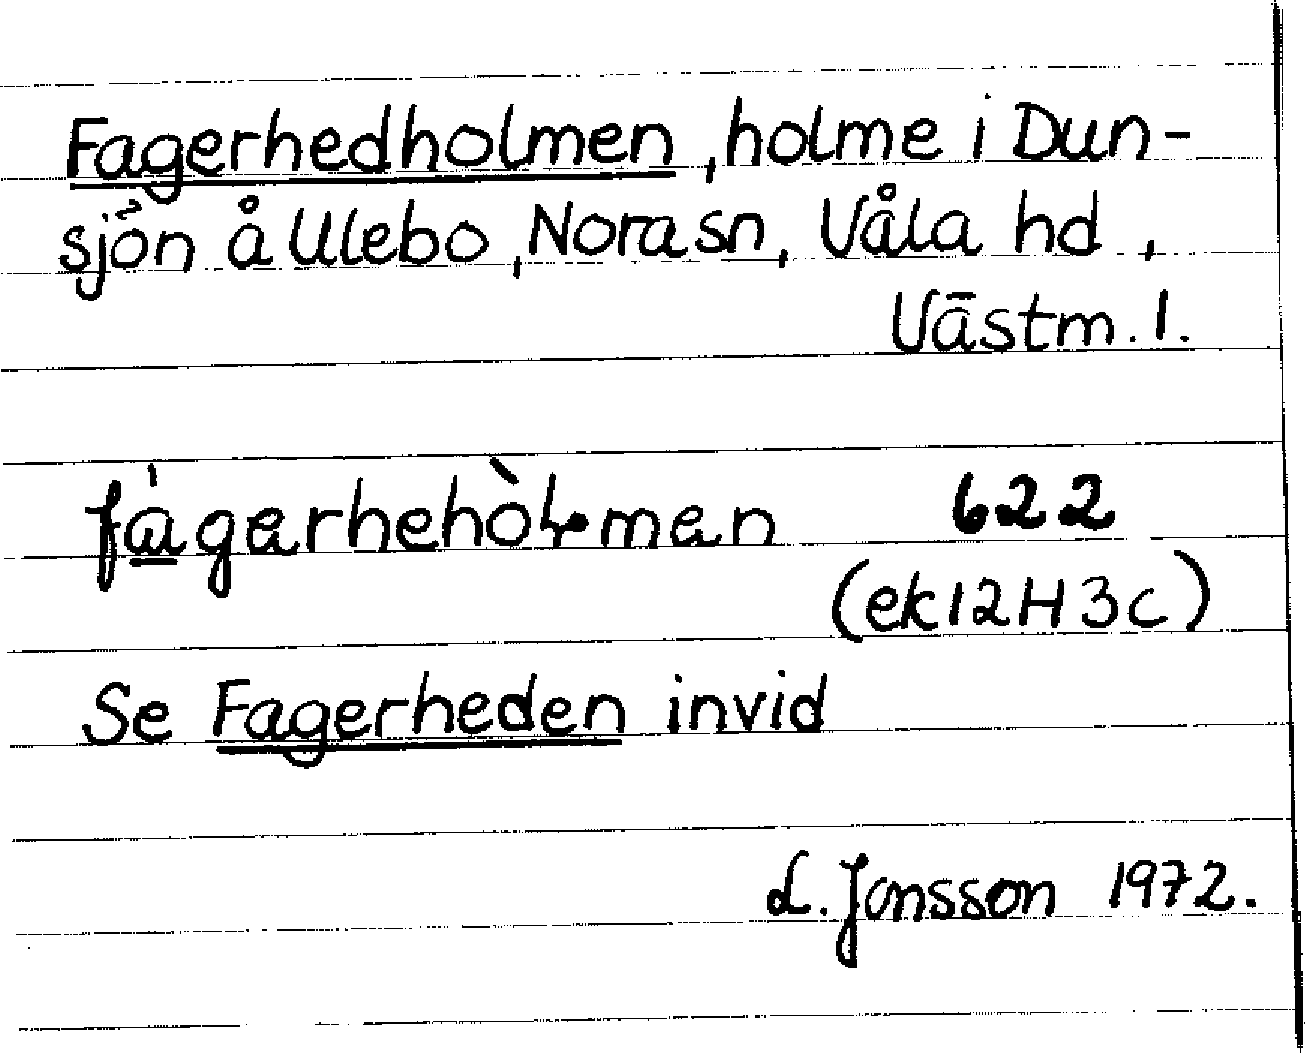 Fagerhedholmen, holme i Dun-
sjön å Ulebo, Nora sn, Våla hd,
Västm. l.
622
(ek 12H3c)
Se Fagerheden invid
L. Jonsson 1972.